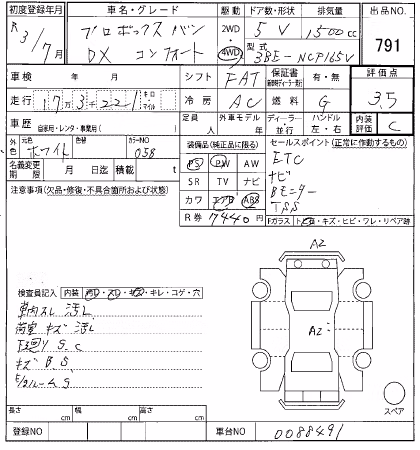 初度登録年月 車名・グレード 駆動 ドア数・形状 排気量 出品NO.
R 3/7月 プロボックス バン DX コンフォート 2WD 4WD 5V 1500cc 791
型式 3BE-NCP165V
車検 年 月 シフト FAT 保証書 有・無 評価点
走行 17万3-221 キロ マイル 冷房 AC 燃料 G 3.5
車歴 自家用・レンタ・事業用( ) 定員 人 外車モデル 年 ディーラー 並行 ハンドル 左・右 内装評価 C
外色 元色 ホワイト 色替 カラーNO 058 装備品(純正品に限る) セールスポイント(正常に作動するもの)
名義変更期限 月 日迄 積載 t PS PW AW ETC
SR TV ナビ ナビ
注意事項(欠品・修復・不具合箇所および状態) カワ エアB ABS Bモニター
R券 7440円 TSS
Fガラス トビ石・キズ・ヒビ・ワレ・リペア跡
検査員記入 内装 ヨゴレ・スレ・キズ・キレ・コゲ・穴 A2
車内スレ 汚レ
荷室 キズ 汚レ A2
下廻り S.C
キズ B.S
E/gルーム S
スペア
長さ cm 幅 cm 高さ cm
登録NO 車台NO 0088491